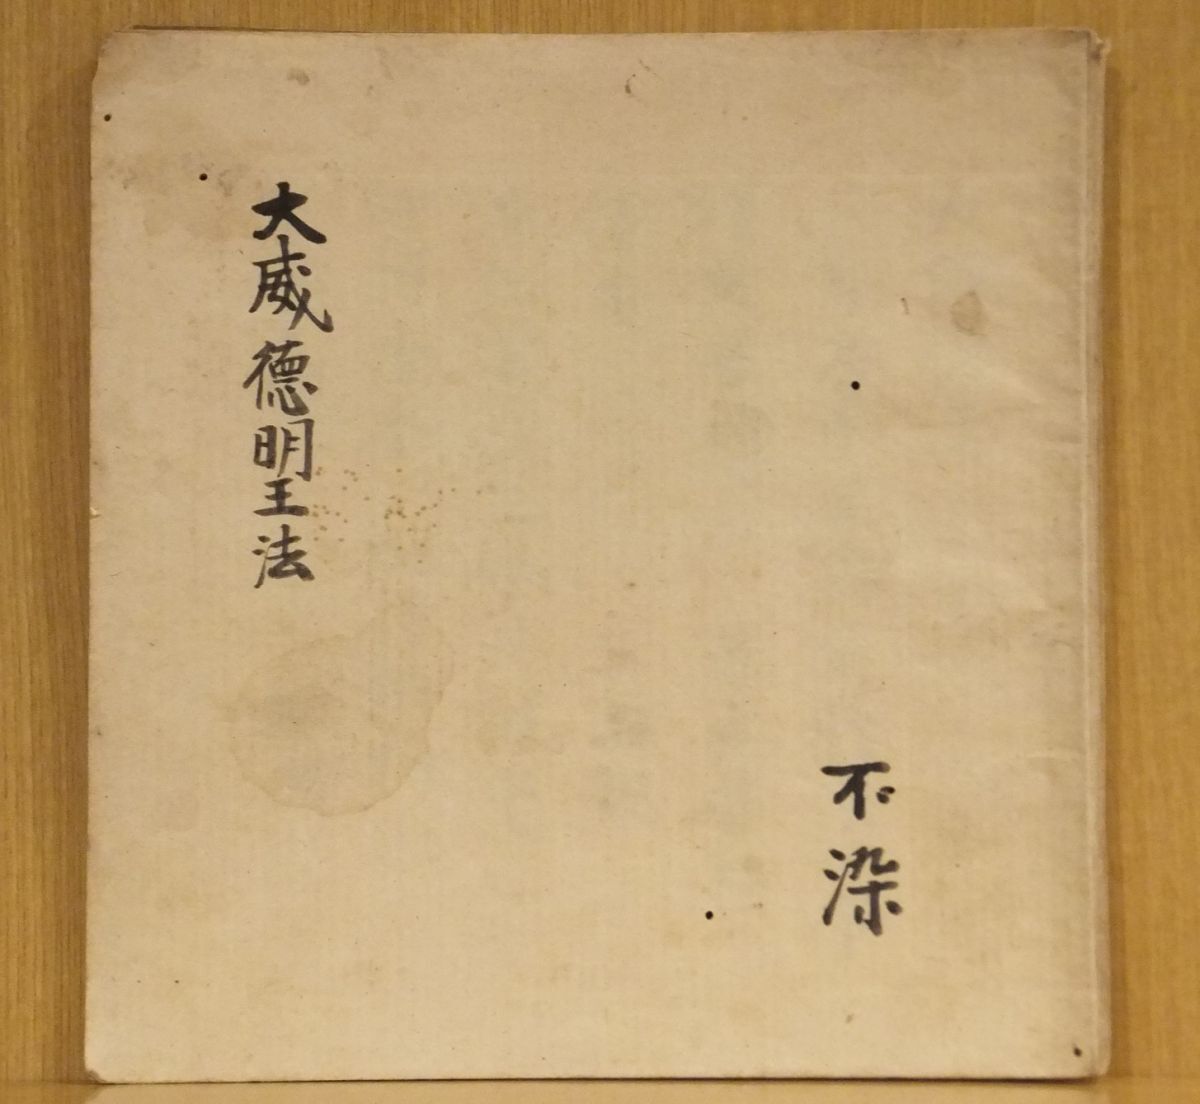 大威德明王法
不染